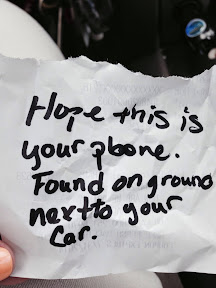 Hope this is
your phone.
Found on ground
next to your
Car.